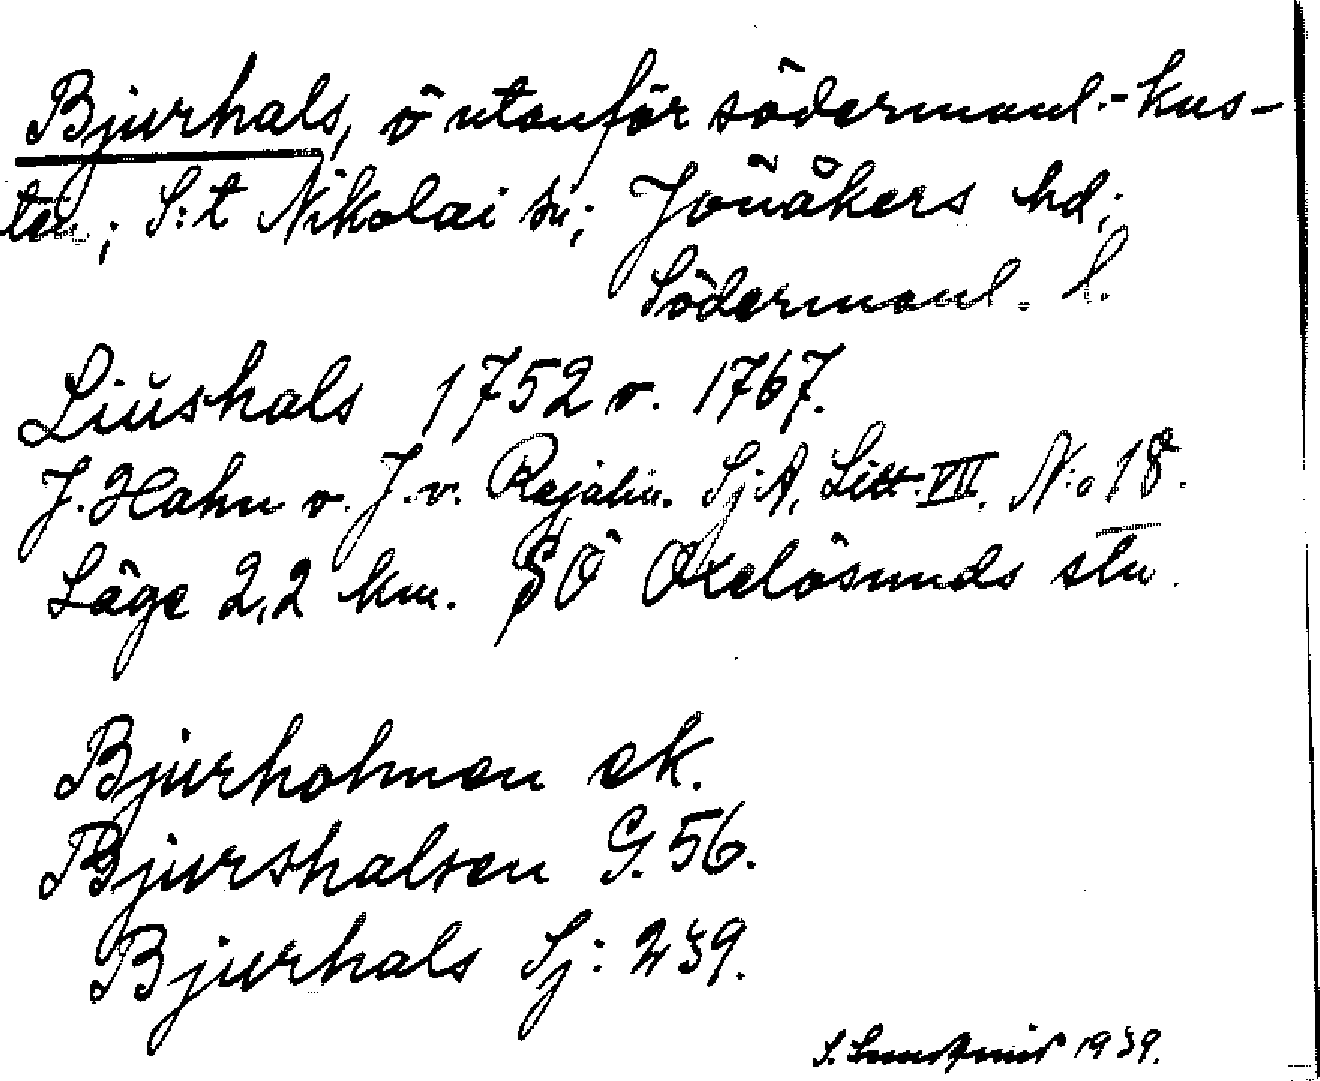 Bjurhals, ö utanför södermanl.-kus-
ten; S:t Nikolai sn; Jönåkers hd;
Södermanl. l.
Liüshals 1752 o. 1767.
J. Hahn o. J. v. Rajalin. Sj.A. Litt. VIII. N:o 18.
Läge 2,2 km. SÖ Oxelösunds stn.
Bjurholmen ek.
Bjurshalsen G. 56.
Bjurhals Sj: 239.
S. 1939.